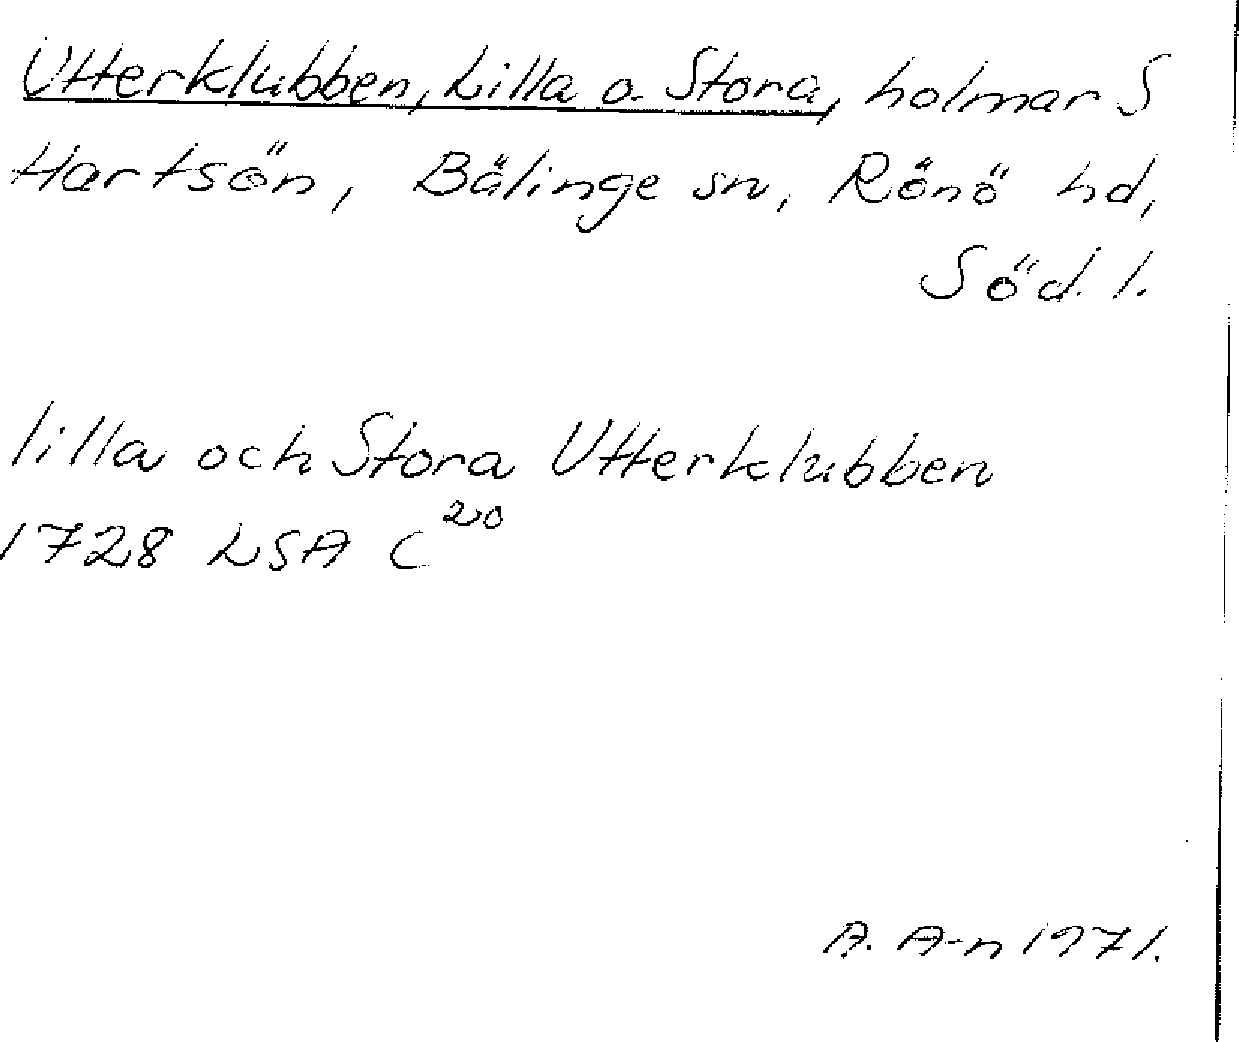 Utterklubben, Lilla o. Stora, holmar S
Hartsön, Bälinge sn, Rönö hd,
Söd. l.
lilla och Stora Utterklubben
1728 LSA C²⁰
A. A-n 1971.